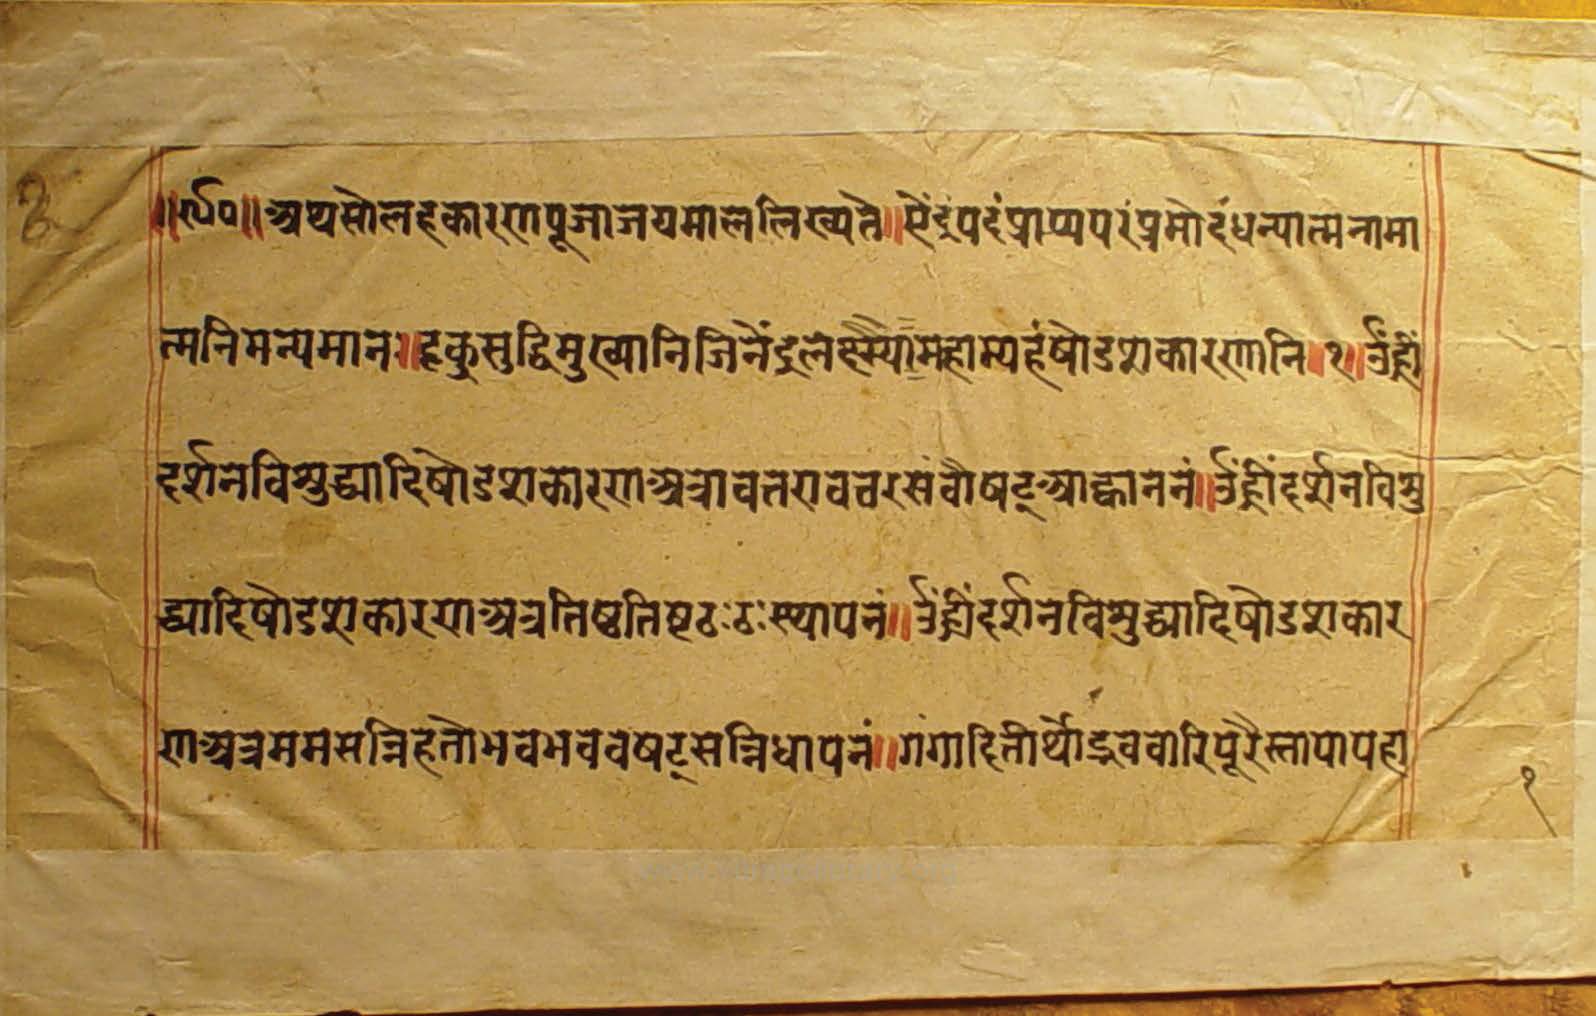 ॥र्द्य०॥अथसोलहकारणपूजाजयमाललिख्यते॥सेंद्रंपदंप्राप्यपरंप्रमोदंधन्यात्मनामा
त्मनिमन्यमानः॥दृकुसुद्धिमुख्यानिजिनेंद्रलक्ष्म्यामहाम्यहंषोडशकारणानि॥१॥उंह्रीं
दर्शनविशुद्ध्यादिषोडशकारणअत्रावतरावतरसंवौषट्आह्वाननं॥उंह्रींदर्शनविशु
द्ध्यादिषोडशकारणअत्रतिष्ठतिष्ठठःठःस्थापनं॥उंह्रींदर्शनविशुद्ध्यादिषोडशकार
णअत्रममसन्निहतोभवभववषट्सन्निधापनं॥गंगादितीर्थोद्भववारिपूरैस्तापापहा
१